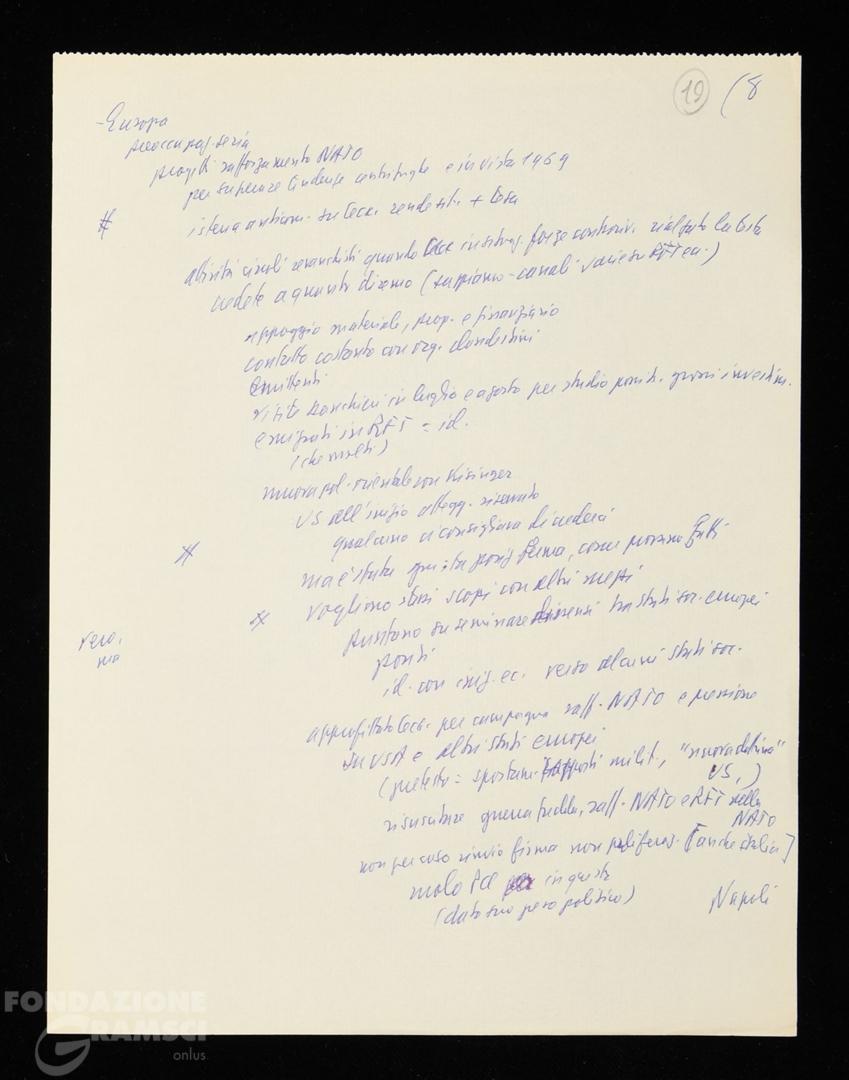 19 (8
- Europa
preoccupaz. seria
progetti rafforzamento NATO
per superare tendenze centrifughe e in vista 1969
# isteria anticom. su Cecc. rende sit. + tesa
attività circoli revanchisti quando Cecc forze controriv. rialzato la testa
vedete a quanto diremo (sappiamo - canali RFT ecc.)
appoggio materiale, prop. e finanziario
contatto costante con org. clandestini
Emittenti
visite banchieri in luglio e agosto per studio possib. grossi investim.
emigrati in RFT = id.
(che molti)
nuova pol. orientale con Kisinger
US dall'inizio attegg. riservato
qualcuno ci consigliava di cedere
# ma è stata giusta posiz ferma, come provano fatti
# vogliono stessi scopi con altri mezzi
vero,
ma
puntano su seminare dissensi tra stati soc. europei
ponti
id. con ec. verso alcuni stati soc.
approfittato Cecc. per campagna raff. NATO e pressione
su USA e altri stati europei
(pretesto = spostam. rapporti milit, "nuova dottrina"
US,)
risuscitare guerra fredda, raff. NATO e RFT nella
NATO
non per caso rinvio firma non proliferaz. [anche Italia]
ruolo Pd in questo
(dato suo peso politico)
Napoli
FONDAZIONE
GRAMSCI
onlus